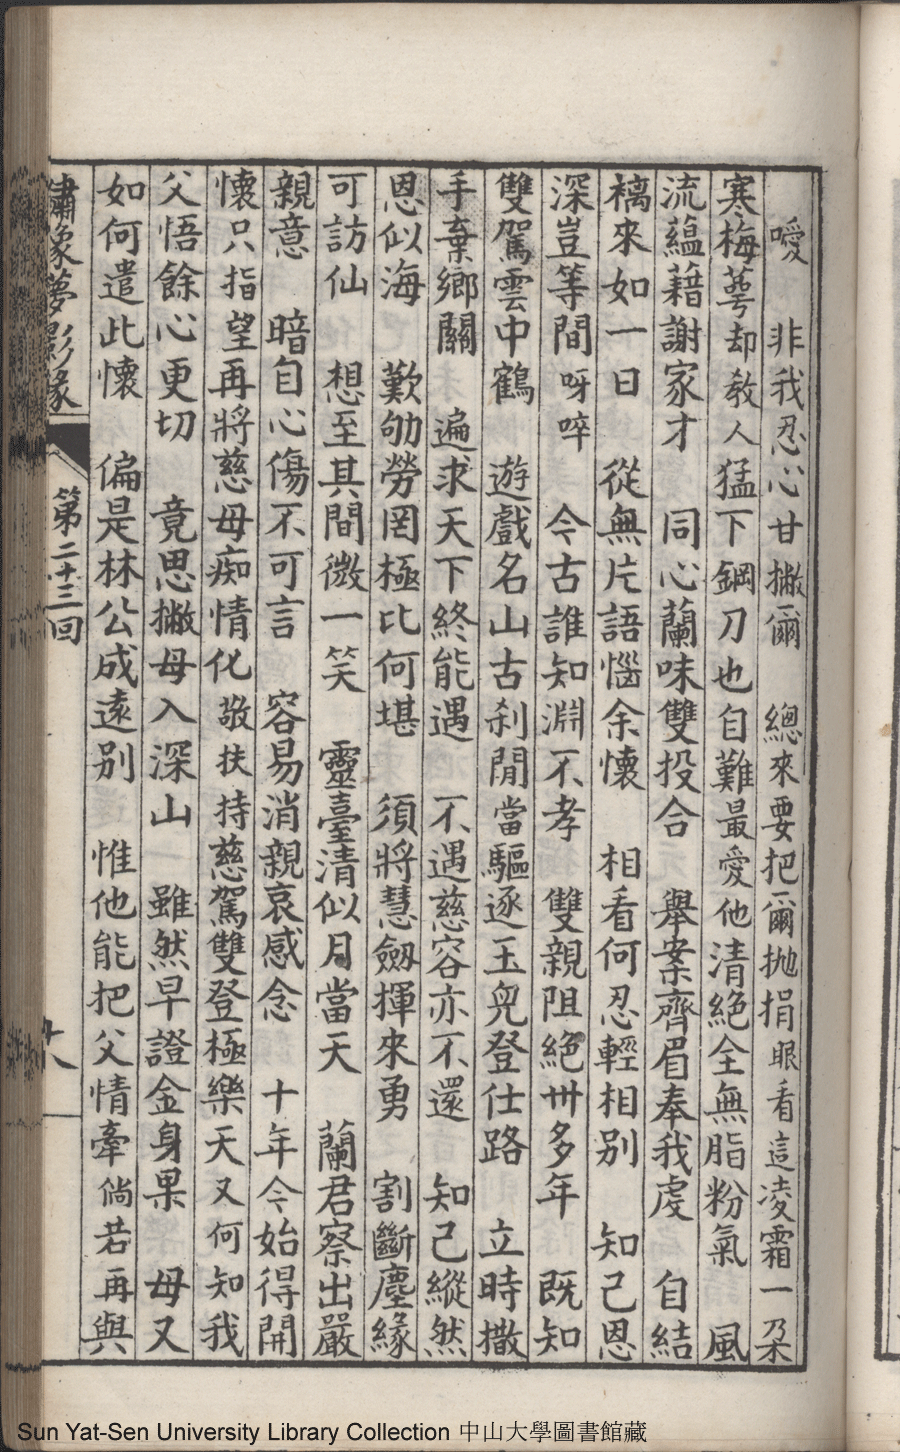 噯　非我忍心甘撇爾　總來要把爾拋捐眼看這凌霜一朵
寒梅萼却教人猛下鋼刀也自難最愛他清絕全無脂粉氣　風
流蘊藉謝家才　同心蘭味雙投合　舉案齊眉奉我虔　自結
褵來如一日　從無片語惱余懷　相看何忍輕相别　知己恩
深豈等閒呀啐　今古誰知淵不孝　雙親阻絕卅多年　既知
雙駕雲中鶴　遊戲名山古刹閒當驅逐玉兔登仕路　立時撒
手棄鄉關　遍求天下終能遇　不遇慈容亦不還　知己縱然
恩似海　歎劬勞罔極比何堪　須將慧劒揮來勇　割斷塵緣
可訪仙　想至其間微一笑　靈臺清似月當天　蘭君察出嚴
親意　暗自心傷不可言　容易消親哀感念　十年今始得開
懷只指望再將慈母痴情化敬扶持慈駕雙登極樂天又何知我
父悟餘心更切　竟思撇母入深山　雖然早證金身果　母又
如何遣此懷　偏是林公成遠别　惟他能把父情牽倘若再與
繡像夢影緣　第二十三回　十八
Sun Yat-Sen University Library Collection 中山大學圖書館藏